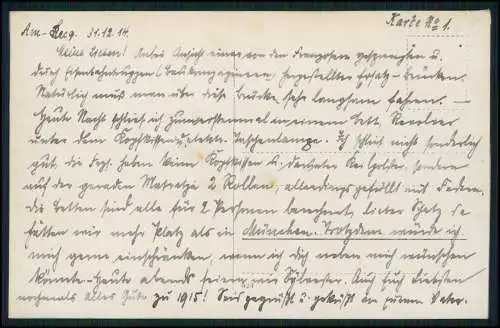 Karte No 1.
Am- 31.12.14.
Meine Lieben! Unten Ansicht einer von den Franzosen gesprengten u.
durch Eisenbahntruppen hergestellten Ersatz-Brücken.
Natürlich muß man über diese Brücke sehr langsam fahren. —
Heute Nacht schlief ich zum erstenmal in einem Bett, Revolver
unter dem Kopfkissen u. elektr. Taschenlampe. Ich schlief nicht sonderlich
gut, die Frzs. haben keine Kopfkissen u. sondern
auf der geraden Matratze 2 Rollen, allerdings gefüllt mit Federn.
Die Betten sind alle für 2 Personen berechnet, lieber Schatz da
hätten wir mehr Platz als in München. Trotzdem würde ich
mich gerne einschränken, wenn ich dich neben mich wünschen
könnte. Heute abends feiern wir Sylvester. Auch Euch Liebsten
nochmals alles Gute zu 1915! Seid gegrüßt u. geküßt von Eurem Vater.